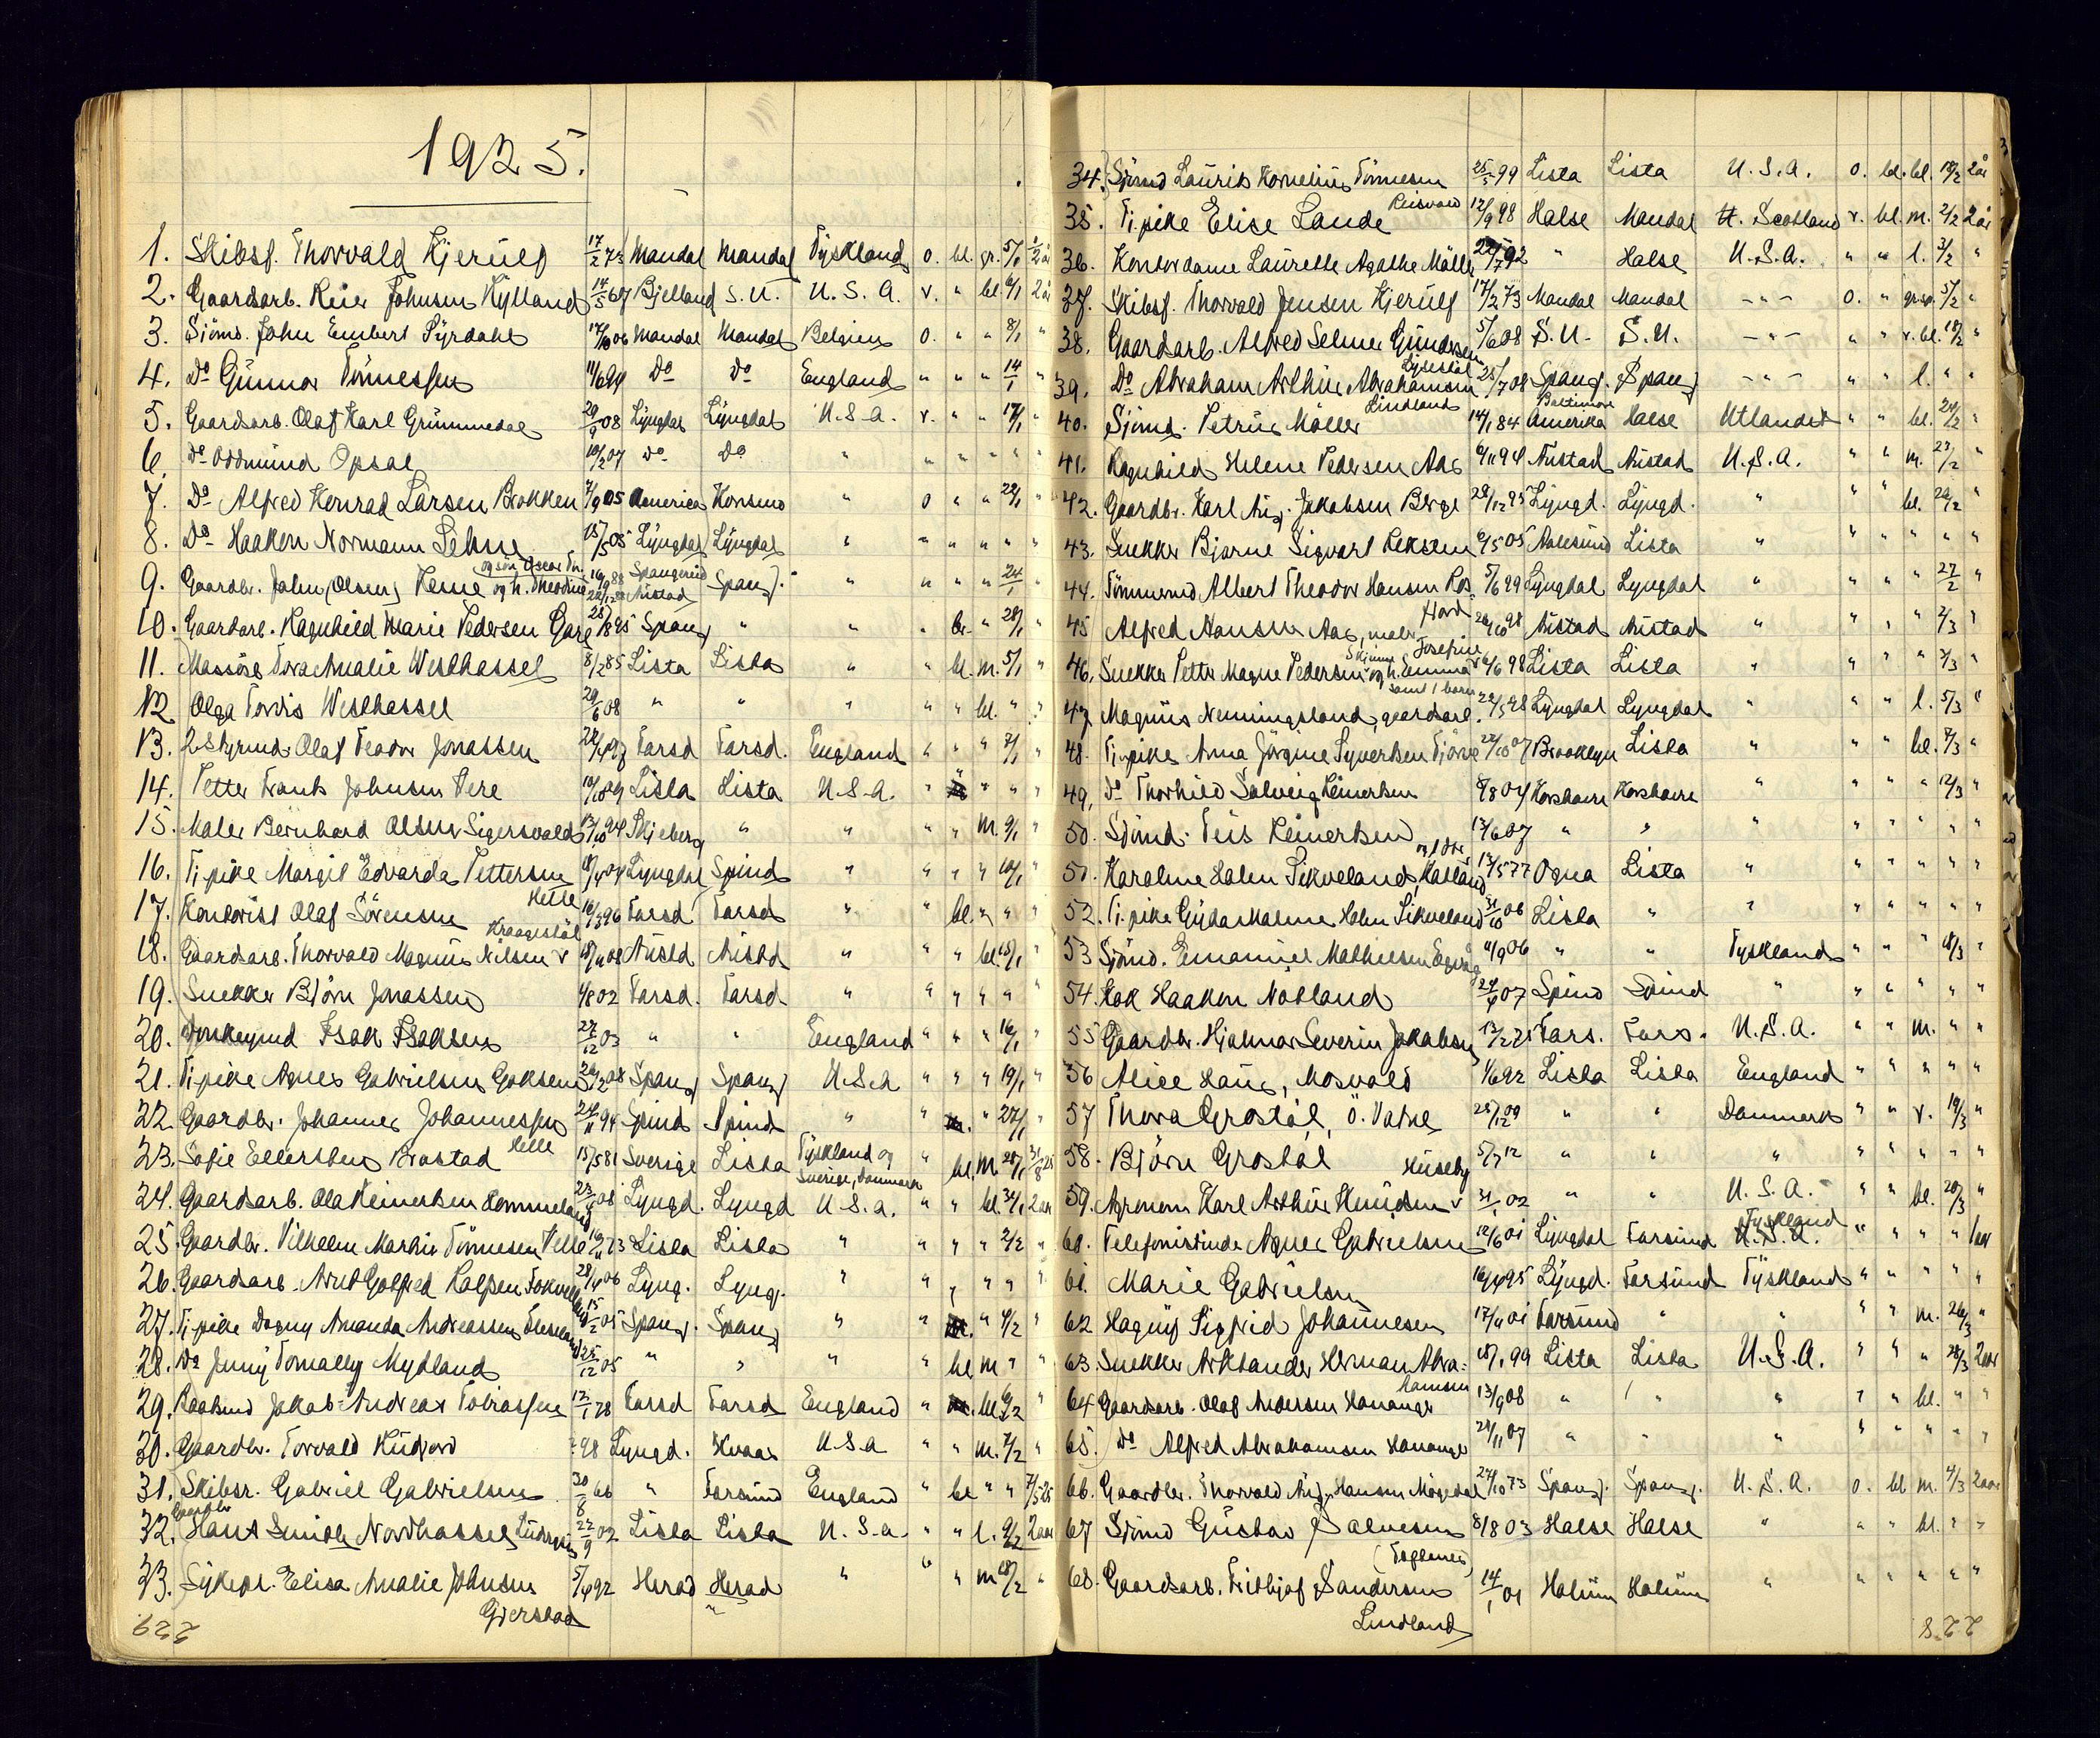 1925.
1. Skibsf. Thorvald Kjerulf 17/2 73 Mandal Mandal Tyskland o. bl. gr. 5/1 1/2 år
2. Gaardsarb. Reier Johnsen Kylland 14/5 67 Bjelland S. U. U. S. A. v. " bl. 6/1 2 år
3. Sjömd. John Embert Syrdahl 17/10 06 Mandal Mandal Belgien o. " " 8/1 "
4. Do Gunnar Tönnessen 11/6 94 Do Do England " " " 14/1 "
5. Gaardsarb. Olaf Karl Grummedal 29/9 08 Lyngdal Lyngdal U.S.A. v. " " 17/1 "
6. Do Oddmund Opsal 10/2 07 Do Do " " " " " "
7. Do Alfred Konrad Larsen Brokken 7/9 05 America Konsmo " o " " 22/1 "
8. Do Haakon Normann Lehne 15/5 05 Lyngdal Lyngdal " " " " " "
og sön Oscar
9. Gaardbr. John (Olsen) Kenne og h. Theodine 16/9 88 Spangereid Spang. " " " " 24/1 "
Austad
10. Gaardarb. Ragnhild Marie Pedersen Gare 28/8 95 Spang " " " br. " 28/1 "
11. Massöse Tora Amalie Westhassel 8/2 85 Lista Lista " " bl. m. 5/1 "
12 Olga Tordis Westhassel 29/6 08 " " " " " bl. " "
13. 2. Styrmd. Olaf Teodor Jonassen Farsd Farsd. England " " " 7/1 "
14. Petter Frank Johnsen Vere 10/10 09 Lista Lista U.S.A. " " " " "
15. Maler Bernhard Olsen Sigersvold 13/10 94 Skjeberg " " " " m. 9/1 "
16. Tj.pike Margit Edvarda Pettersen 18/4 04 Lyngdal Spind " " " " 10/1 "
17. Kontorist Olaf Sörensen 16/3 96 Farsd Farsd " " bl. " " "
Kraagestöl
18. Gaardsarb. Thorvald Magnus Nilsen v 08 Austd Austd " " " bl. 15/1 "
19. Snekker Björn Jonassen 4/8 02 Farsd. Farsd. " " " " " "
20. Isak Isaksen 27/12 03 " " England " " " 16/1 "
21. Tj.pike Agnes Gabrielsen Gaksem 08 Spang Spang U.S.A " " " 19/1 "
22. Gaardbr. Johannes Johannessen 24/11 94 Spind Spind " " " 27/1 "
Helle
23. Sofie Ellertsen Brastad 15/5 81 Sverige Lista Tyskland og Sverige, Danmark " bl. m. 28/1 31/8 25
24. Gaardsarb. Ola Reinertsen Hommeland 08 Lyngd. Lyngd U.S.a. " " bl. 31/1 2 aar
25. Gaardbr. Vilhelm Martin Tönnesen 73 Lista Lista " " " " 2/2 "
26. Gaardsarb. Arnt Gotfred 28/4 06 Lyng. Lyng. " " " " " "
27. Tj.pike Dagny Amanda Andreassen 15/2 05 Spang. Spang " " " 4/2 "
28. Do Jenny Tomally Mydland 25/12 05 " " " " bl m " "
29. Jakob Andreas Tobiassen 12/1 78 Farsd Farsd England " bl. 6/2 "
30. Gaardbr. Torvald Rudjord 98 Lyngd. Kvaas U.S.a " " m. 7/2 "
31. Skibsr. Gabriel Gabrielsen 30/8 66 " Farsund England " bl " " 7/5 25
Gaardbr
32. Hans Smith Nordhassel Ludvigsen 22/9 02 Lista Lista U.S.a. " " l. 9/2 2 aar
33. Sykepl. Elisa Amalie Johnsen 5/4 92 Herad Herad " " " m 18/2 "
Gjerstad
229
34. Sjömd Laurits Kornelius Tönnesen 25/5 99 Lista Lista U.S.A. o. bl. bl. 18/2 2 år
Reisvold
35. Tj.pike Elise Lande 12/9 98 Halse Mandal Scotland v. bl. m. 2/2 2 år
36. Kontordame Laurette Agathe Möller 92 " Halse U.S.A. " " l. 3/2 "
37. Skibsf. Thorvald Jensen Kjerulf 17/2 73 Mandal Mandal -"- o. " 5/2 "
38. Gaardsarb. Alfred Selmer Gundersen 5/6 08 S.U. S.U. -"- " " v. bl. 18/2 "
39. Do Abraham Arthur Abrahamsen 08 Spang. Spang -"- " " l. " "
Lindland Baltimore
40. Sjömd. Petrus Möller 14/1 84 Amerika Halse Utlandet " " bl. 24/2 "
41. Ragnhild Helene Pedersen Aas 6/11 94 Austad Austad U.S.A. " " m. 27/2 "
42. Gaardbr. Karl Aug. Jakobsen Berge 29/12 95 Lyngd. Lyngd. " " " bl. 28/2 "
43. Snekker Bjarne Sigvart Reksten 6/5 05 Aalesund Lista " " " " " "
44. Tömmermd Albert Theodor Hansen Ros 5/6 99 Lyngdal Lyngdal " " " " 27/2 "
45 Alfred Hansen Aas, maler 98 Austad Austad " " " " 2/3 "
Josefine
46. Snekker Petter Magne Pedersen og h. Emma 98 Lista Lista " " " " 3/3 "
samt 1 barn
47 Magnus Nenningsland, gaardsarb. 98 Lyngdal Lyngdal " " " l. 5/3 "
48. Tj.pike Anna Jörgine Syvertsen 22/10 07 Brooklyn Lista " " " bl. 7/3 "
49. Do Thorhild Solveig Reinertsen 9/8 04 Korshavn Korshavn " " " " 12/3 "
50. Sjömd. Teis Reinertsen 13/6 07 " " " " " " " "
51. Karoline Halen Sikveland, Kalland 13/5 77 Ogna Lista " " " " " "
52. Tj.pike Gyda Malene Holm Sikveland 31/10 06 Lista " " " " " " "
53 Sjömd. Emanuel Mathiesen 11/9 06 " " Tyskland " " " 18/3 "
54. Kok Haakon Nötland 07 Spind Spind " " " " " "
55 Gaardbr. Hjalmar Severin Jakobsen Fars. Fars. U.S.A. " " m. " "
56 Alice Haug, Mosvold 1/6 92 Lista Lista England " " " " "
57 Thora Grostöl, Ö. Vatne 28/12 09 " " Danmark " " v. 19/3 "
58. Björn Grostöl 5/7 12 " " " " " " " "
Huseby
59. Agronom Karl Arthur Knudsen v 31/1 02 " " U.S.A. " " bl. 20/3 "
Tyskland
60. Telefonistinde Agnes Gabrielsen 12/6 01 Lyngdal Farsund " " " " 1 aar
61. Marie Gabrielsen 95 Lyngd. Farsund Tyskland " " " " "
62 Haguy Sigfrid Johannesen 01 Farsund " " " " m. 26/3 "
63. Snekker Herman Abra- 18/1 99 Lista Lista U.S.A. " " " 28/3 2 aar
hamsen
64 Gaardsarb. Olaf Andersen Hananger 13/9 08 " " " " " bl. " "
65. Do Alfred Abrahamsen Hananger 24/11 07 " " " " " " " "
66. Gaardbr. Thorvald Aug. Hansen 73 Spang. Spang. U.S.A. o. bl m. 4/3 2 aar
67 Sjömd Gustav Salvesen 8/8 03 Halse Halse " " " bl. " "
68. Gaardsarb. Fridtjof Sandersen 14/1 01 Holum Holum " " " " " "
Lindland
228